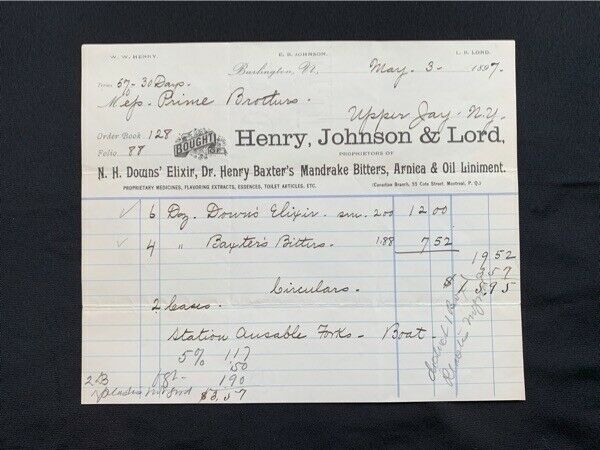 W. W. HENRY. E. B. JOHNSON. L. B. LORD.
Burlington, Vt., May 3 - 1897.
Terms 5% - 30 Days.
Mess. Prime Brothers.
Upper Jay - N.Y.
Order Book 128
Folio 88
BOUGHT OF
Henry, Johnson & Lord,
PROPRIETORS OF
N. H. Downs' Elixir, Dr. Henry Baxter's Mandrake Bitters, Arnica & Oil Liniment.
PROPRIETARY MEDICINES, FLAVORING EXTRACTS, ESSENCES, TOILET ARTICLES, ETC. (Canadian Branch, 53 Cote Street, Montreal, P. Q.)
6 Doz. Down's Elixir. sm. 2.00 12 00
4 " Baxter's Bitters. 1.88 7 52
19 52
3 57
$ 15 95
Circulars.
2 Cases.
Station Ausable Forks - Boat -
5% 1 17
50
fgt - 1 90
2 B
$3.57